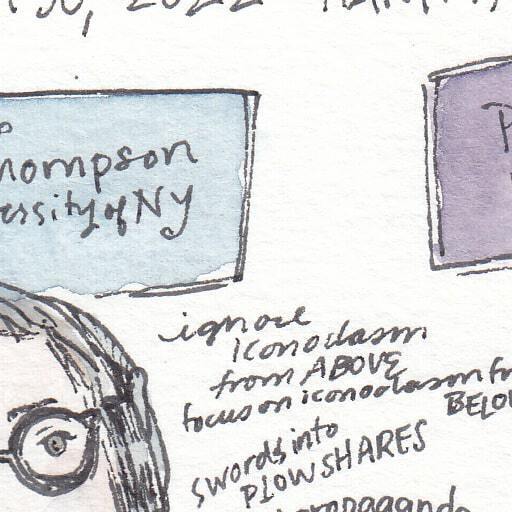 2022
Thompson
ersity of NY
ignore
iconoclasm
from ABOVE
focus on iconoclasm fr
BELO
swords into
PLOWSHARES
propaganda